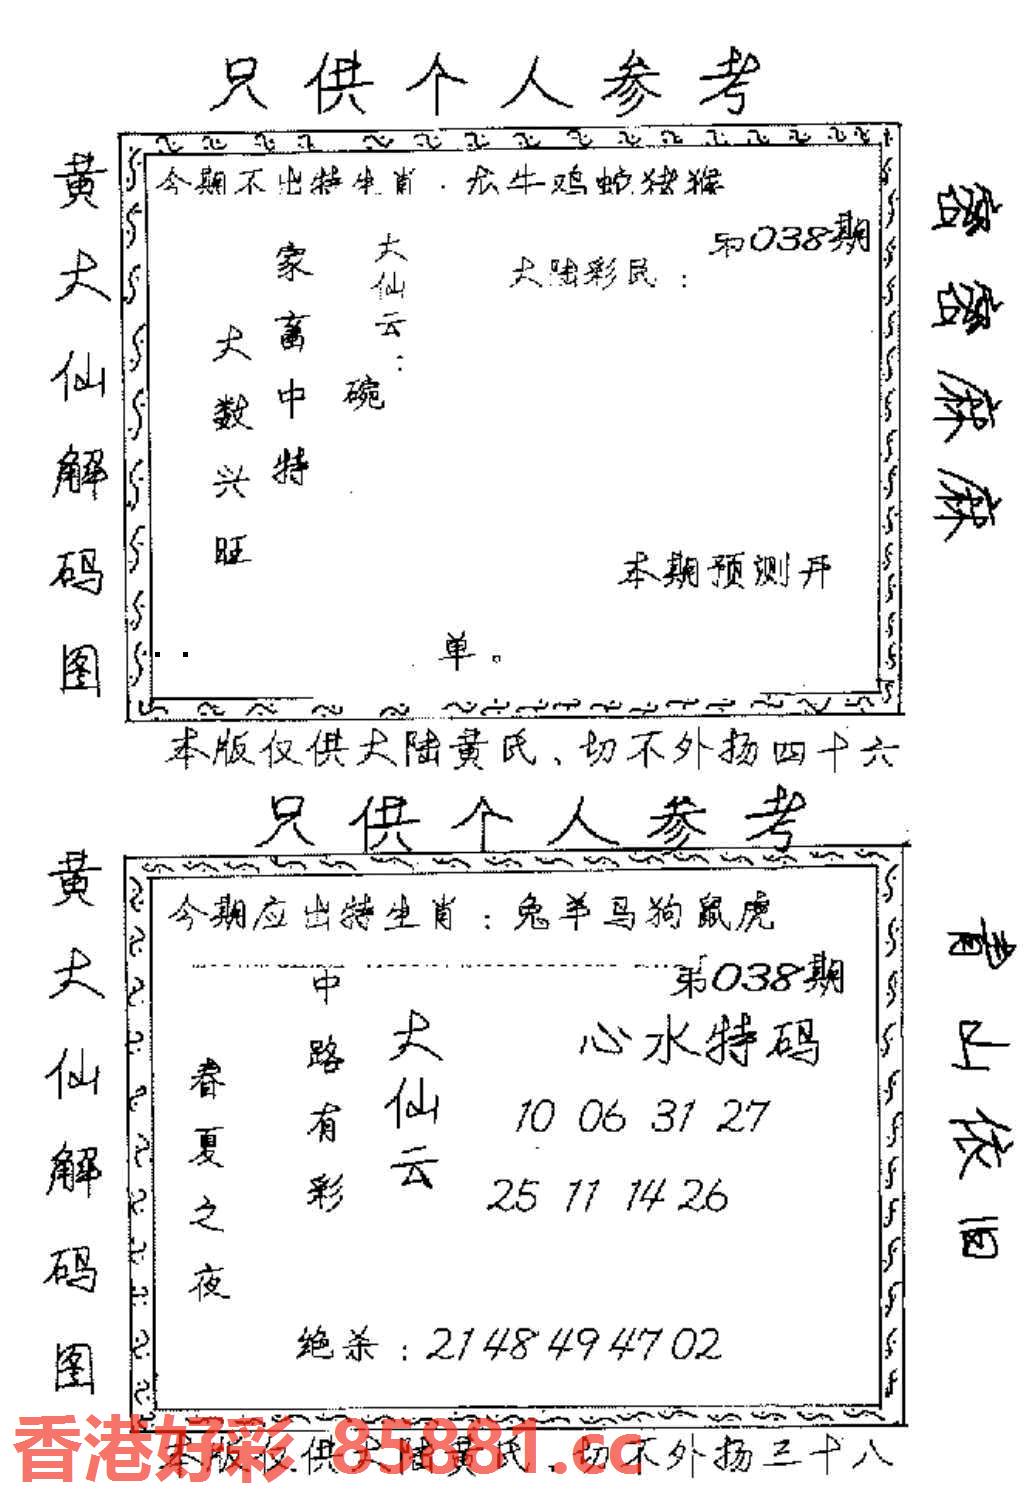 只供个人参考
黄大仙解码图
今期不出特生肖.龙牛鸡蛇猪猴
第038期
大陆彩民:
大仙云:
碗
家畜中特
大数兴旺
本期预测开
单。
密密麻麻
本版仅供大陆黄氏、切不外扬四十六
只供个人参考
黄大仙解码图
今期应出特生肖:兔羊马狗鼠虎
第038期
心水特码
10 06 31 27
25 11 14 26
大仙云
中路有彩
春夏之夜
绝杀:21 48 49 47 02
青山依旧
本版仅供大陆黄氏、切不外扬三十八
香港好彩 85881.cc